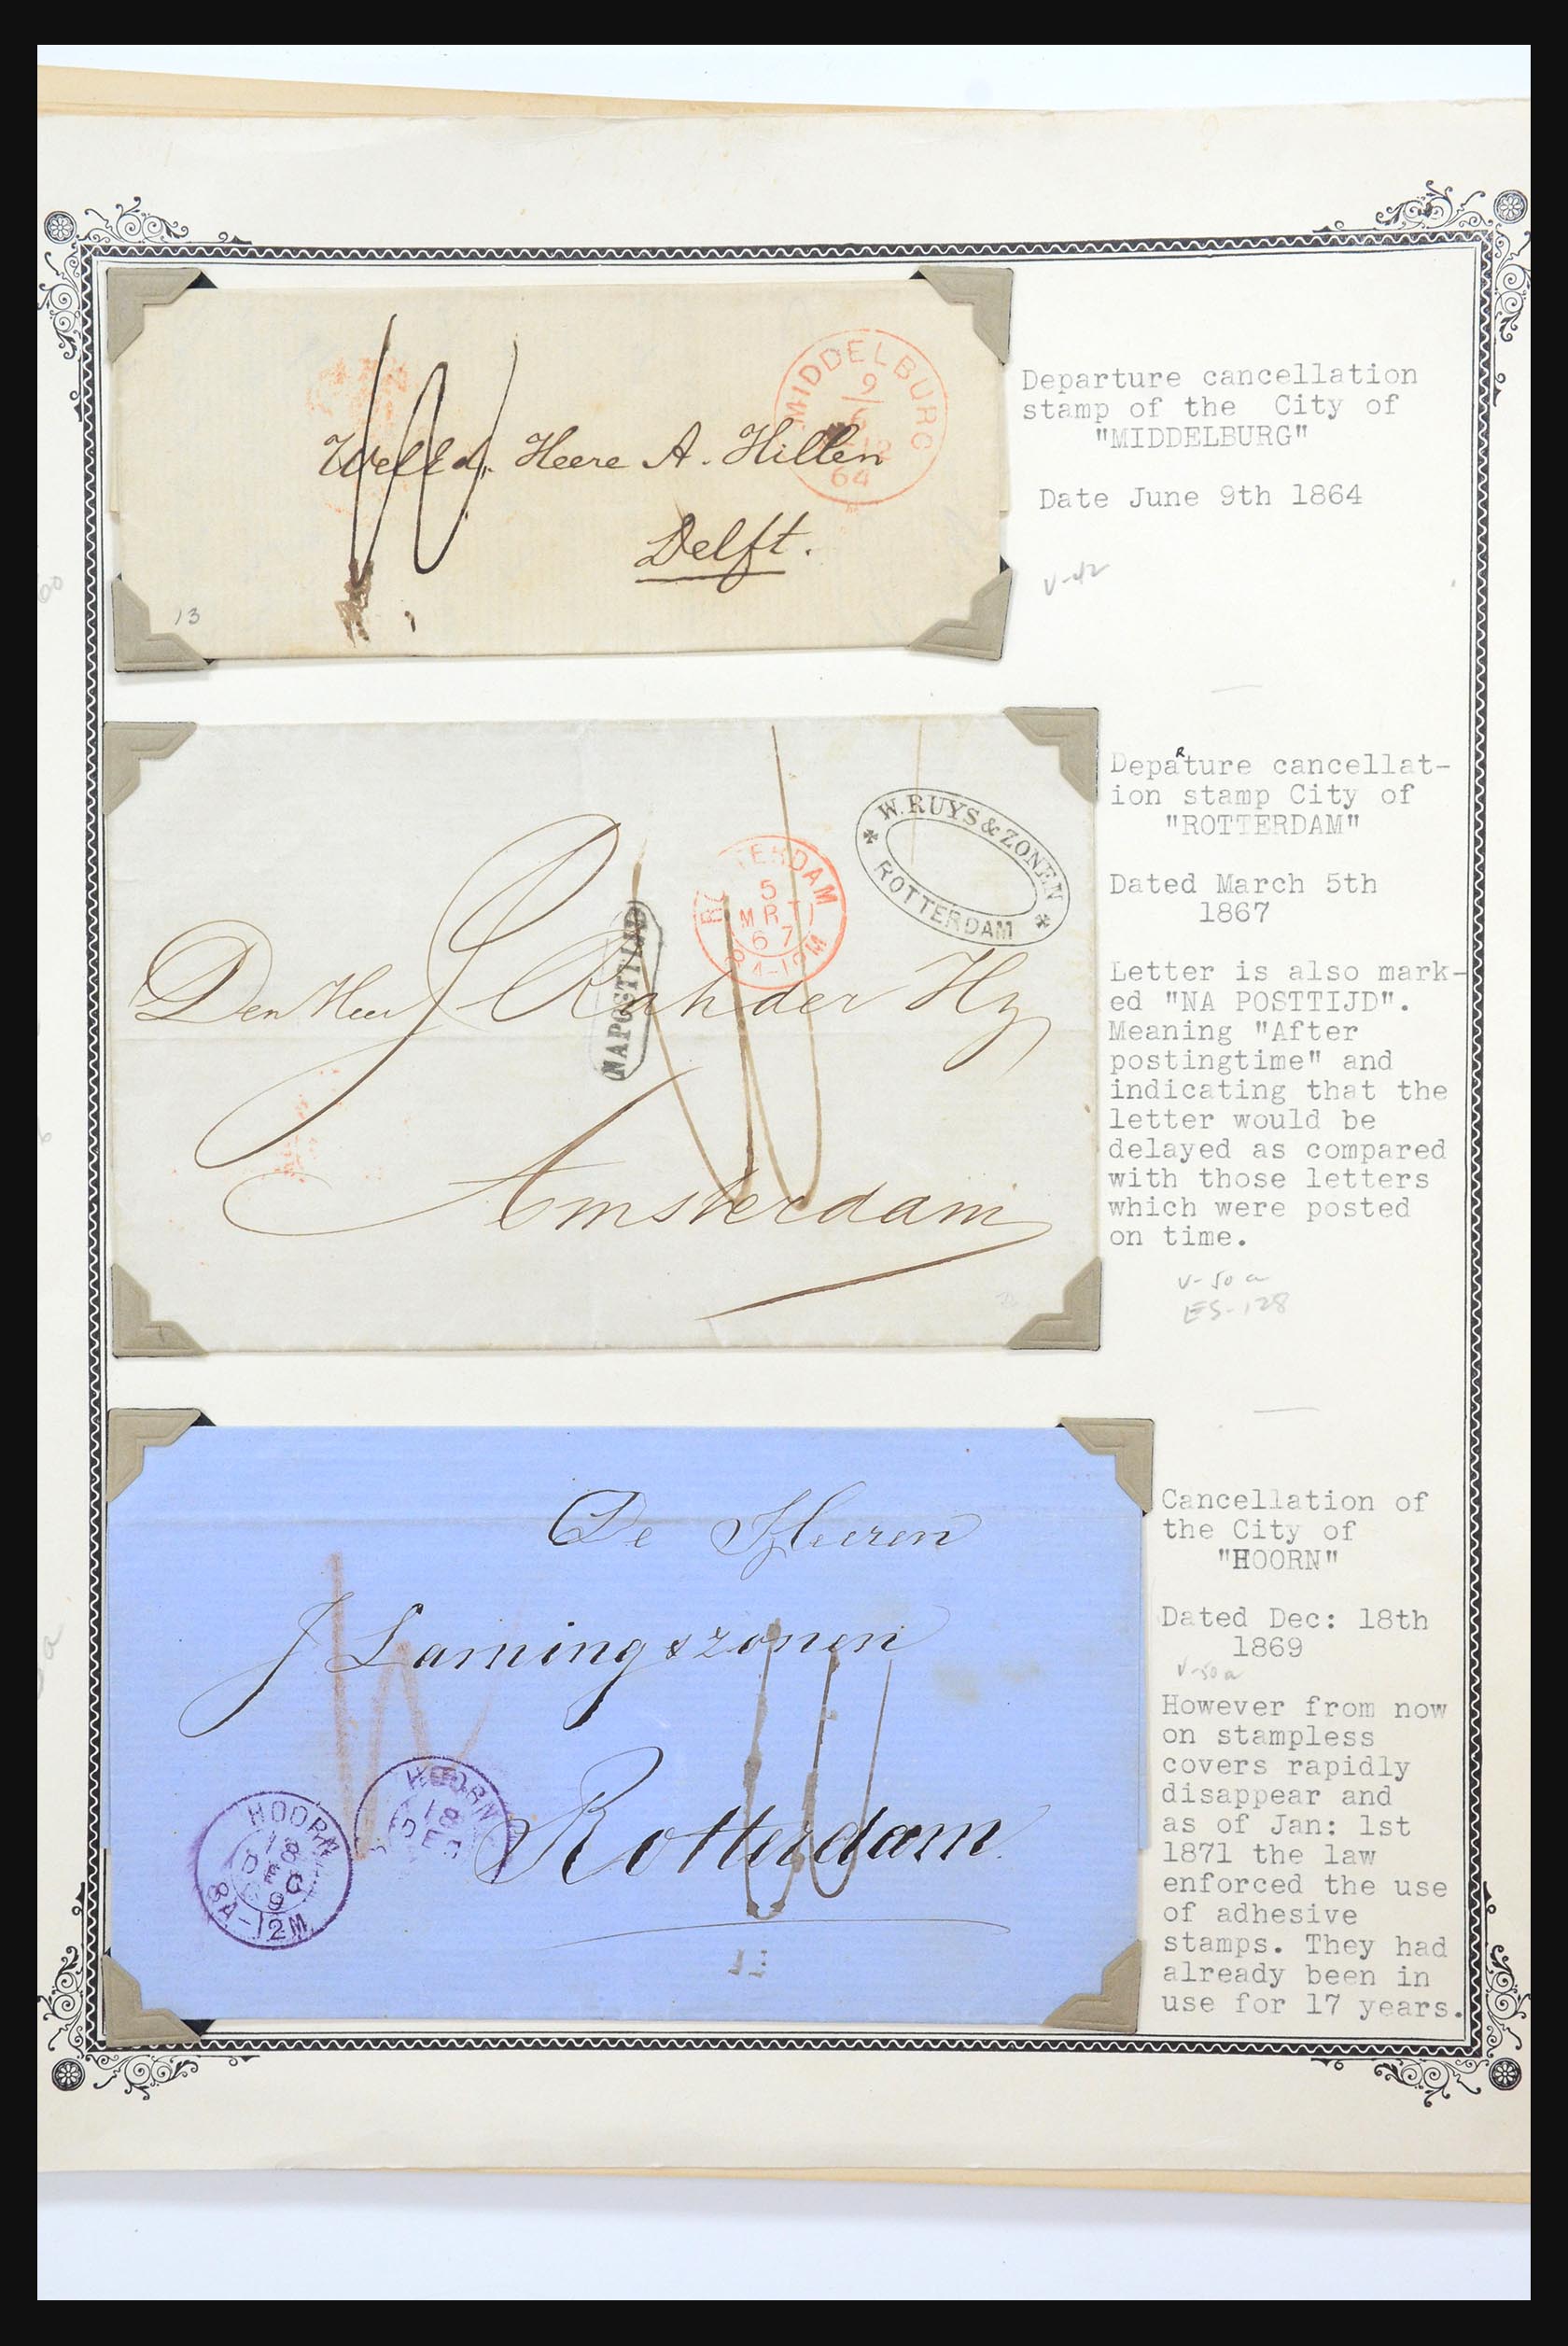 MIDDELBURG
9
64
Heere A. Hillen
Delft.
13
Departure cancellation
stamp of the City of
"MIDDELBURG"
Date June 9th 1864
V-42
W. RUYS & ZONEN
ROTTERDAM
TERDAM
5
MRT
67
8A-12M
NAPOSTTIJD
Den Heer J Rahder Hz
Amsterdam
DepaRture cancellat-
ion stamp City of
"ROTTERDAM"
Dated March 5th
1867
Letter is also mark-
ed "NA POSTTIJD".
Meaning "After
postingtime" and
indicating that the
letter would be
delayed as compared
with those letters
which were posted
on time.
V-50 a
ES-128
De Heeren
J Laming & zonen
Rotterdam
HOORN
18
DEC
HOORN
18
DEC
9
8A-12M
Cancellation of
the City of
"HOORN"
Dated Dec: 18th
1869
V-50a
However from now
on stampless
covers rapidly
disappear and
as of Jan: 1st
1871 the law
enforced the use
of adhesive
stamps. They had
already been in
use for 17 years.